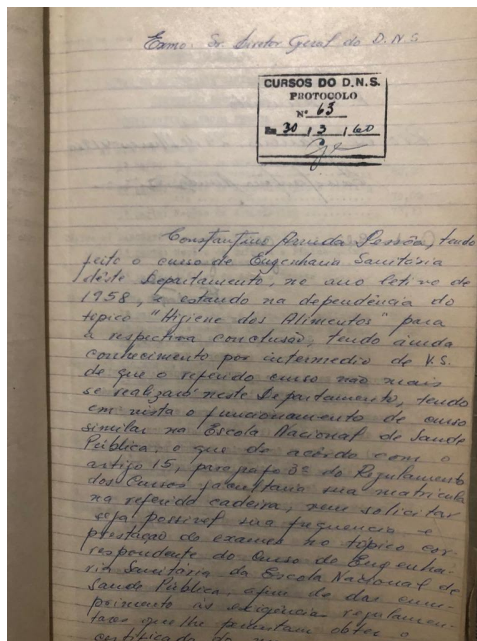 Exmo. Sr. Diretor Geral do D.N.S
CURSOS DO D.N.S.
PROTOCOLO
Nº 63
Em 30 / 3 / 60
Constantino Arruda Pessôa, tendo
feito o curso de Engenharia Sanitária
dêste Departamento, no ano letivo de
1958, e estando na dependência do
topico "Higiene dos Alimentos" para
a respectiva conclusão, tendo ainda
conhecimento por intermedio de V.S.
de que o referido curso não mais
se realizará neste Departamento, tendo
em vista o funcionamento de curso
similar na Escola Nacional de Saude
Pública, o que de acôrdo com o
artigo 15, paragrafo 3º do Regulamento
dos Cursos facultaria sua matrícula
na referida cadeira, vem solicitar
seja possivel sua frequencia e
prestação de exames no tópico cor-
respondente do Curso de Engenha-
ria Sanitária da Escola Nacional de
Saude Pública, afim de dar cum-
primento às exigências regulamen-
tares que lhe permitam obter o
certificado de